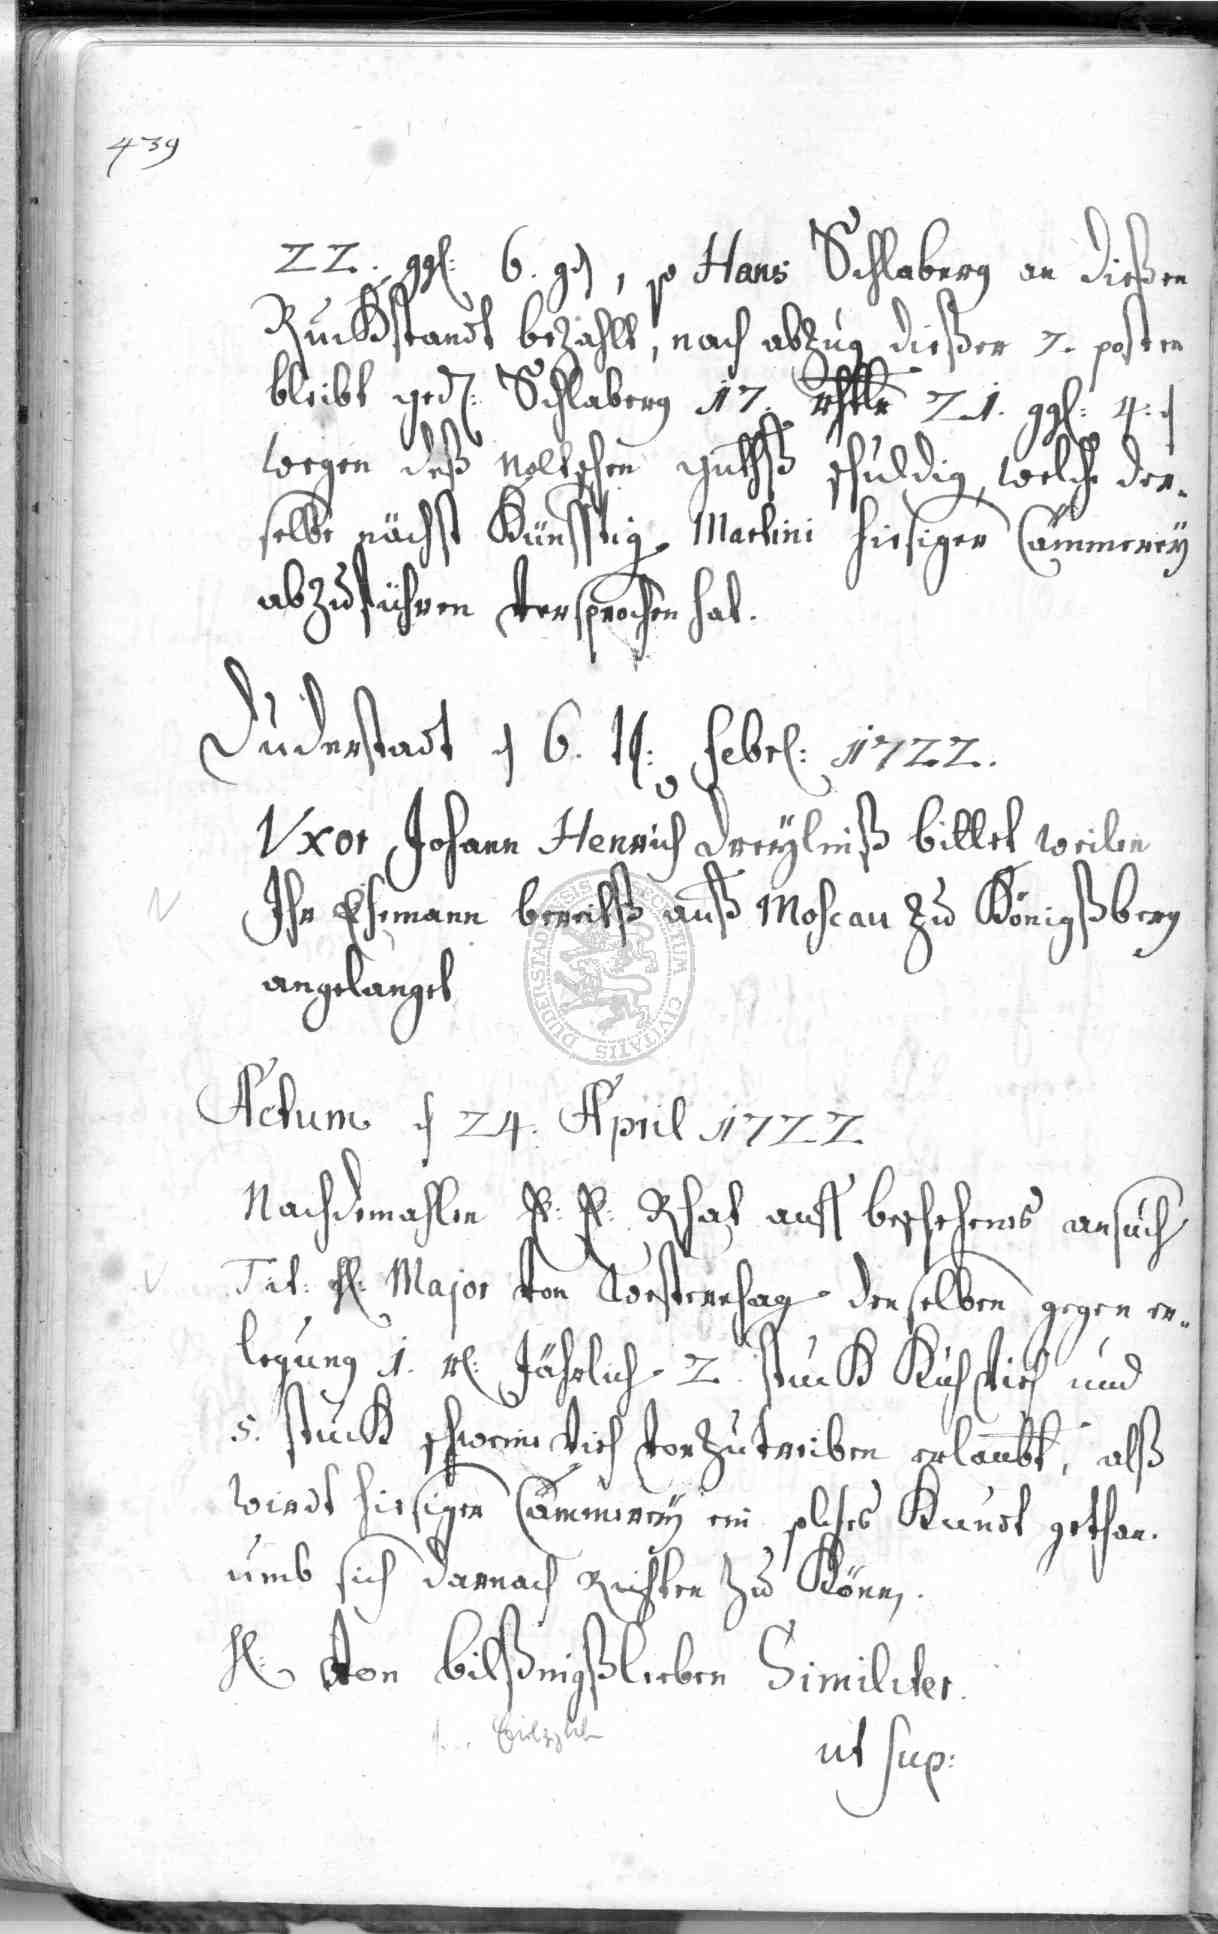 439
22. ggl: 6. gd, so Hans Schlaberg an dießen
Ruckstandt bezahlt, nach abzug dießer 2. posten
bleibt ged: Schlaberg 17. rthlr 21. ggl: 4: d
wegen deß Noltschen guthß schuldig, welche der-
selbe nächst Künfftig Martini hiesiger Cämmerey
abzuführen versprochen hat.
Duderstadt d 6. Febr: 1722.
Vxor Johann Henrich bittet weilen
Ihr Ehemann bereitß auß Moscau zu Königßberg
angelanget
Actum d 24. April 1722
Nachdemahlen E: E: Rhat auff beschehenes ansuch
Tit: H: Major von Westernhag denselben gegen er-
legung 1. rl: Jährlich 2. stuck Kuh vieh und
5. stuck schweine vieh vorzutreiben erlaubt, alß
wirdt hiesiger Cämmerey ein solches Kundt gethan.
umb sich darnach Richten zu Könn.
H: von Similiter.
ut sup:
DUDERSTADIENSIS SECRETUM CIVITATIS